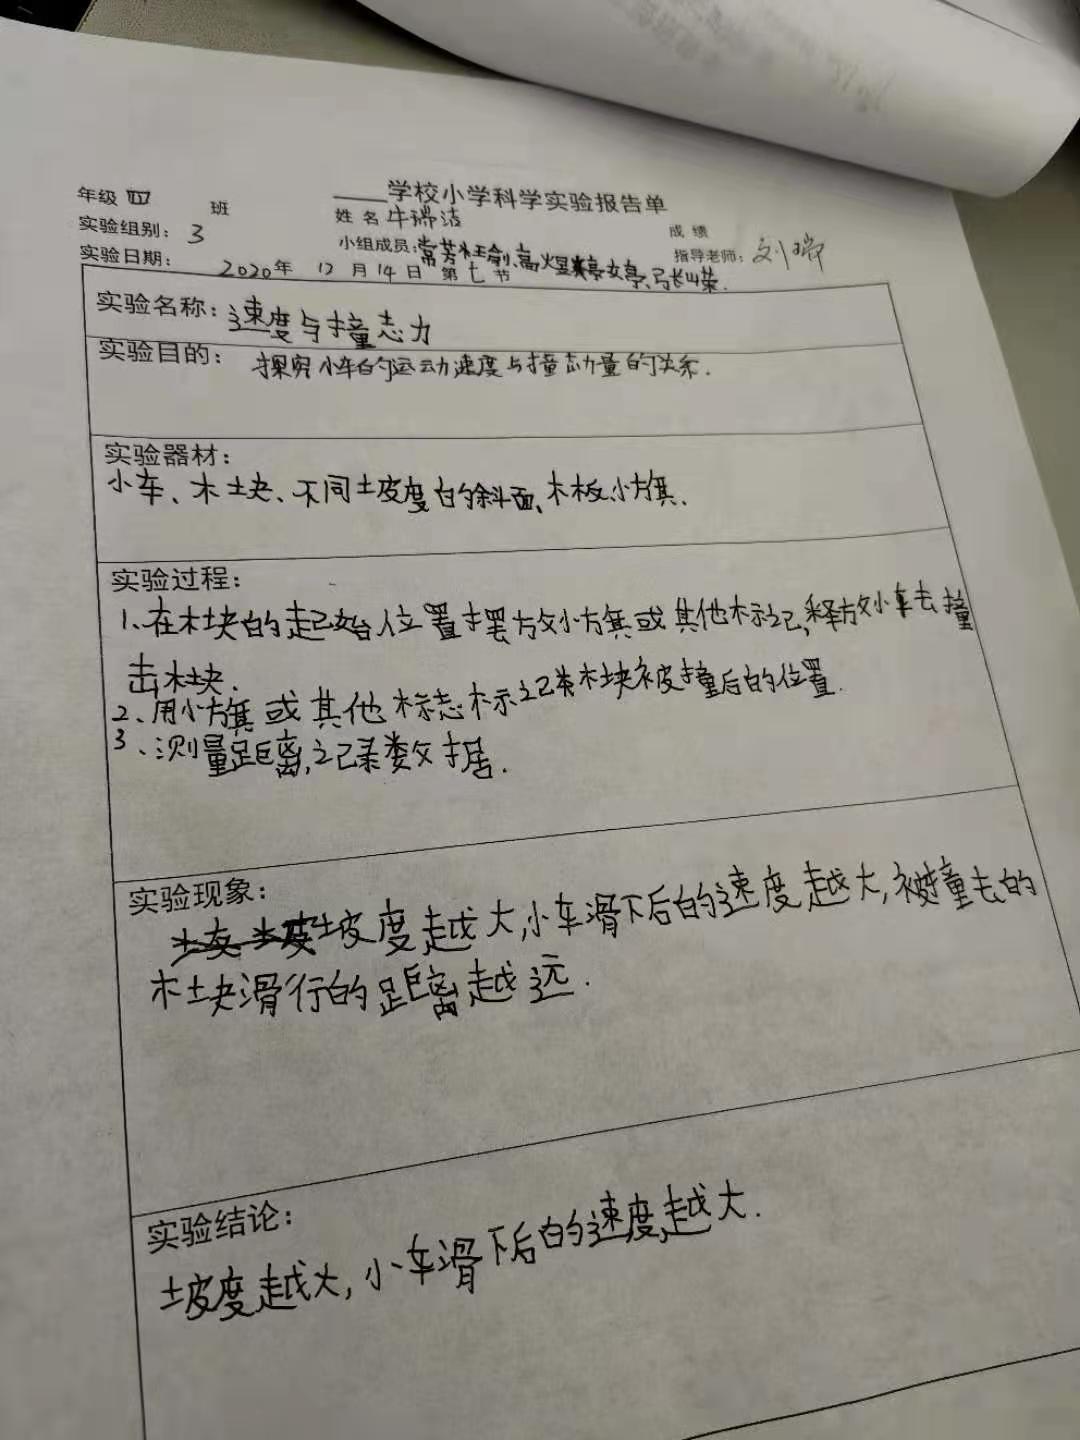 ____学校小学科学实验报告单
年级 四 班 姓名 牛瑞洁 成绩
实验组别: 3 小组成员: 指导老师: 刘瑞
实验日期: 2020年 12月14日 第七节
实验名称: 速度与撞志力
实验目的: 探究小车的运动速度与撞动力量的关系.
实验器材:
小车、木块、不同坡度的斜面、木板、小旗.
实验过程:
1、在木块的起始位置摆放小旗或其他标记,释放小车去撞
击木块.
2、用小旗或其他标志标记木块被撞后的位置.
3、测量距离,记录数据.
实验现象:
坡度越大,小车滑下后的速度越大,被撞击的
木块滑行的距离越远.
实验结论:
坡度越大,小车滑下后的速度越大.